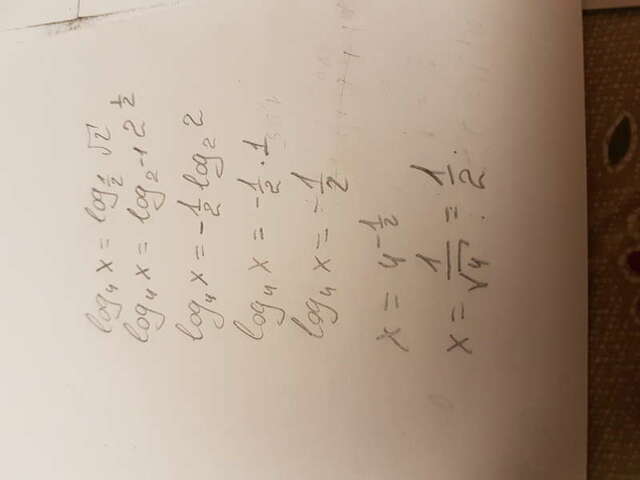 log₄ x = log_{1/2} √2
log₄ x = log_{2⁻¹} 2^{1/2}
log₄ x = -1/2 log₂ 2
log₄ x = -1/2 · 1
log₄ x = -1/2
x = 4^{-1/2}
x = 1/√4 = 1/2.